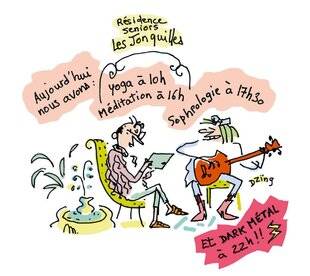 Résidence
seniors
Les Jonquilles
Aujourd'hui
nous avons :
yoga à 10h
Méditation à 16h
Sophrologie à 17h30
DZING
ET DARK METAL
à 22h!!